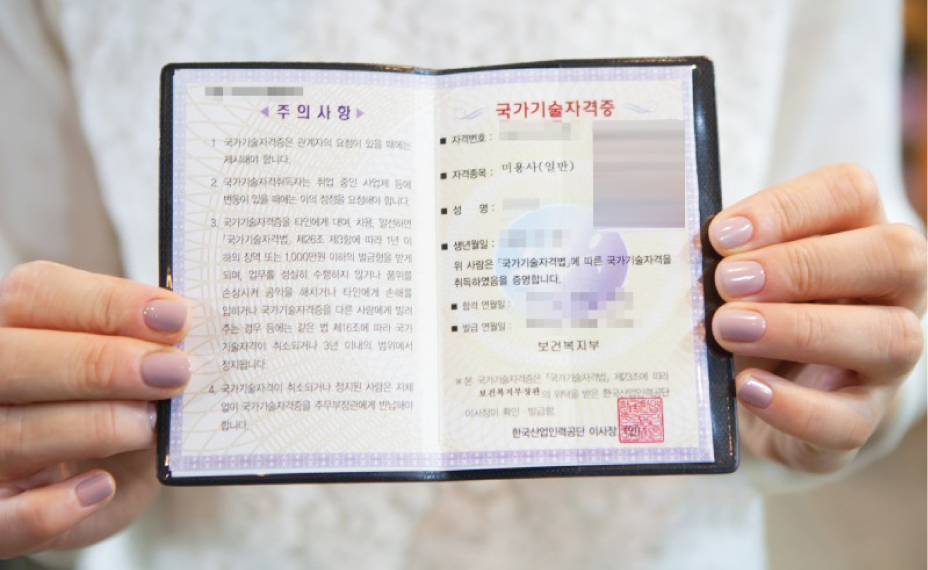 주의사항
1 국가기술자격증은 관계자의 요청이 있을 때에는
제시해야 합니다.
2 국가기술자격취득자는 취업 중인 사업체 등에
변동이 있을 때에는 이의 정정을 요청해야 합니다.
3 국가기술자격증을 타인에게 대여, 차용, 알선하면
「국가기술자격법」 제26조 제3항에 따라 1년 이
하의 징역 또는 1,000만원 이하의 벌금형을 받게
되며, 업무를 성실히 수행하지 않거나 품위를
손상시켜 공익을 해치거나 타인에게 손해를
입히거나 국가기술자격증을 다른 사람에게 빌려
주는 경우 등에는 같은 법 제16조에 따라 국가
기술자격이 취소되거나 3년 이내의 범위에서
정지됩니다.
4 국가기술자격이 취소되거나 정지된 사람은 지체
없이 국가기술자격증을 주무부장관에게 반납해야
합니다.
국가기술자격증
■ 자격번호 :
■ 자격종목 : 미용사(일반)
■ 성 명 :
■ 생년월일 :
위 사람은 「국가기술자격법」에 따른 국가기술자격을
취득하였음을 증명합니다.
■ 합격 연월일 :
■ 발급 연월일 :
보건복지부
※ 본 국가기술자격증은 「국가기술자격법」 제23조에 따라
보건복지부장관의 위탁을 받은 한국산업인력공단
이사장이 확인 발급함.
한국산업인력공단 이사장 (인)